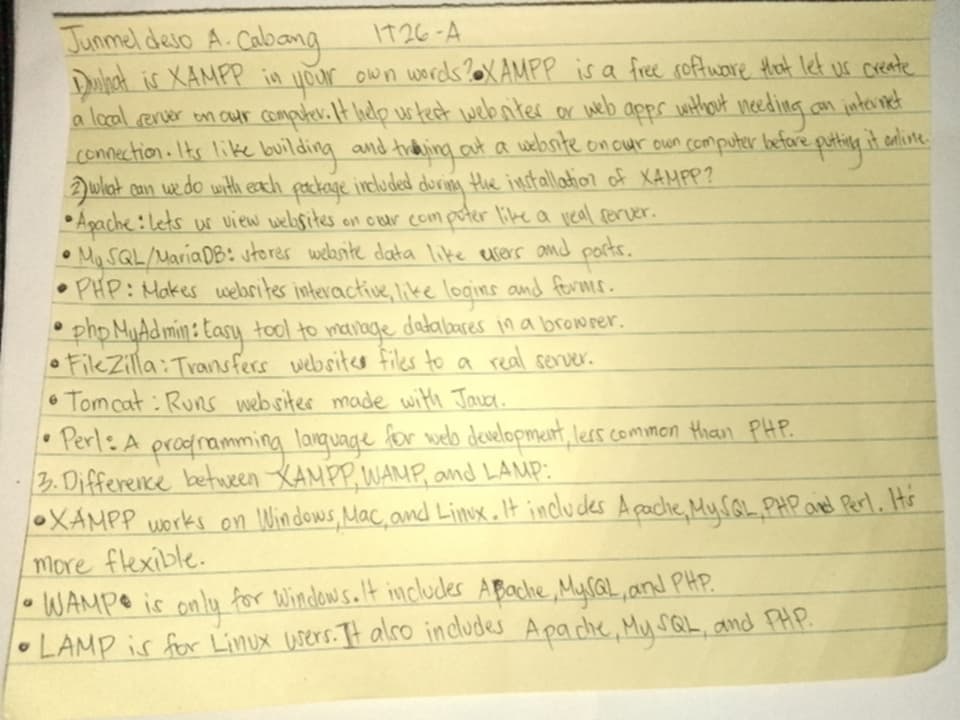 Junmel deso A. Cabang IT26-A
1)what is XAMPP in your own words? •XAMPP is a free software that let us create
a local server on our computer. It help us test websites or web apps without needing an internet
connection. Its like building and trying out a website on our own computer before putting it online.
2)what can we do with each package included during the installation of XAMPP?
• Apache: Lets us view websites on our computer like a real server.
• MySQL/MariaDB: stores website data like users and posts.
• PHP: Makes websites interactive, like logins and forms.
• phpMyAdmin: Easy tool to manage databases in a browser.
• FileZilla: Transfers websites files to a real server.
• Tomcat: Runs websites made with Java.
• Perl: A programming language for web development, less common than PHP.
3. Difference between XAMPP, WAMP, and LAMP:
• XAMPP works on Windows, Mac, and Linux. It includes Apache, MySQL, PHP and Perl. It's
more flexible.
• WAMP is only for Windows. It includes Apache, MySQL, and PHP.
• LAMP is for Linux users. It also includes Apache, MySQL, and PHP.